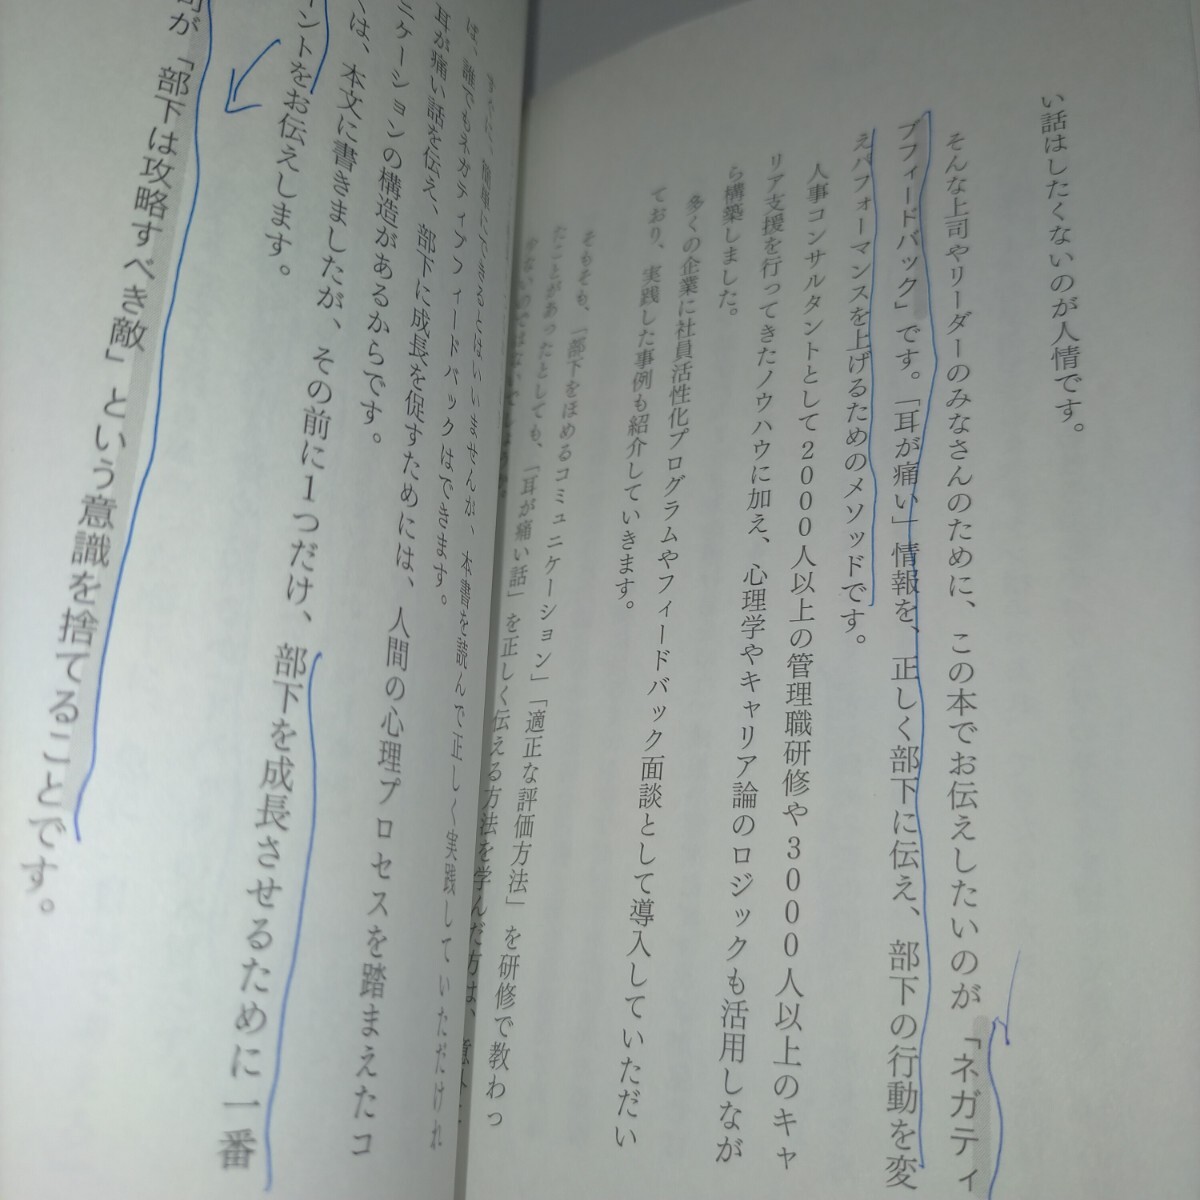 い話はしたくないのが人情です。
そんな上司やリーダーのみなさんのために、この本でお伝えしたいのが「ネガティ
ブフィードバック」です。「耳が痛い」情報を、正しく部下に伝え、部下の行動を変
えパフォーマンスを上げるためのメソッドです。
人事コンサルタントとして2000人以上の管理職研修や3000人以上のキャ
リア支援を行ってきたノウハウに加え、心理学やキャリア論のロジックも活用しなが
ら構築しました。
多くの企業に社員活性化プログラムやフィードバック面談として導入していただい
ており、実践した事例も紹介していきます。
そもそも、「部下をほめるコミュニケーション」「適正な評価方法」を研修で教わっ
たことがあったとしても、「耳が痛い話」を正しく伝える方法を学んだ方は、意外と
少ないのではないでしょうか。
簡単にできるとはいいませんが、本書を読んで正しく実践していただけれ
ば、誰でもネガティブフィードバックはできます。
耳が痛い話を伝え、部下に成長を促すためには、人間の心理プロセスを踏まえたコ
ニケーションの構造があるからです。
は、本文に書きましたが、その前に1つだけ、部下を成長させるために一番
ントをお伝えします。
が「部下は攻略すべき敵」という意識を捨てることです。